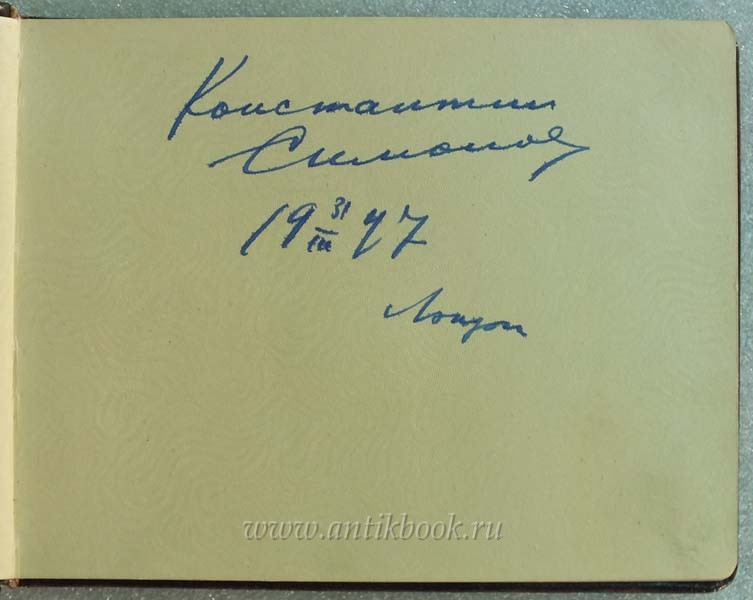 Константин
Симонов
19 31/III 47
Лондон
www.antikbook.ru